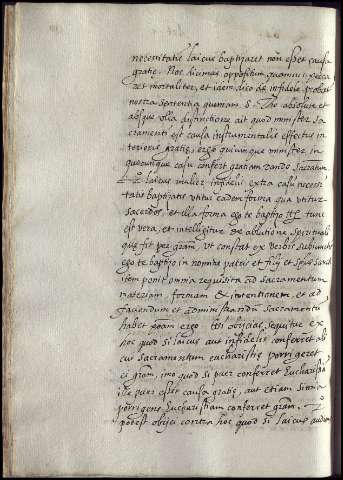 necessitatis laicus baptizaret non esset causa
gratie. Nos dicimus oppositum quamvis peccaret
mortaliter, et idem dico de infideli probatur
nostra sententia quoniam S. Tho absolute et
absque ulla distinctione ait quod minister sa
cramenti est causa instrumentalis effectus in
terioris gratie, ergo quicunque minister in
quocunque casu confert gratiam dando Sacratum.
2º laicus mulier infidelis extra casu necessi
tatis baptizatis utitur eadem forma qua utitur
sacerdos, et illa forma ego te baptizo tunc
est vera, et intelligitur de ablutione spirituali
que fit per gram. ut constat ex verbis subiunctis
ego te baptizo in nomine patris et filij et spus sancti
item ponit omnia requisita ad sacramentum
materiam, formam & intentionem, et ad
faciendum et administrandum sacramentum
habet ergo sequitur ex
hoc quod si laicus aut infidelis conferret ali
cui sacramentum eucharistie porrigeret
ei gram, imo quod si puer conferret Eucharistiam
ille puer esset causa gratie, aut etiam simia
porrigens Eucharistiam conferret gram. 2º
potest obijci contra hoc quod si laicus